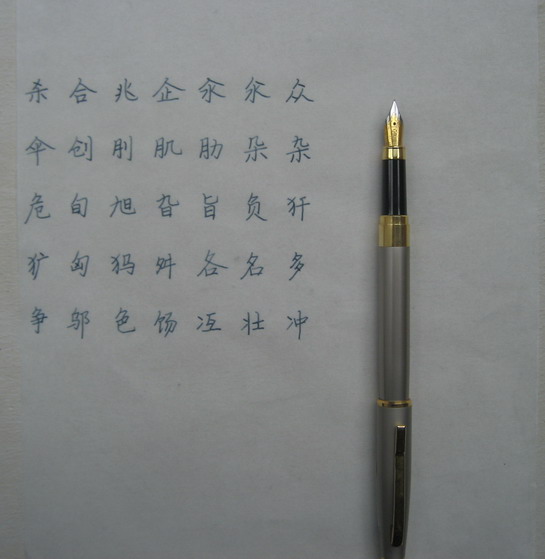 杀 合 兆 企 汆 氽 众
伞 创 刖 肌 肋 朵 杂
危 旬 旭 旮 旨 负 犴
犷 匈 犸 舛 各 名 多
争 邬 色 饧 冱 壮 冲